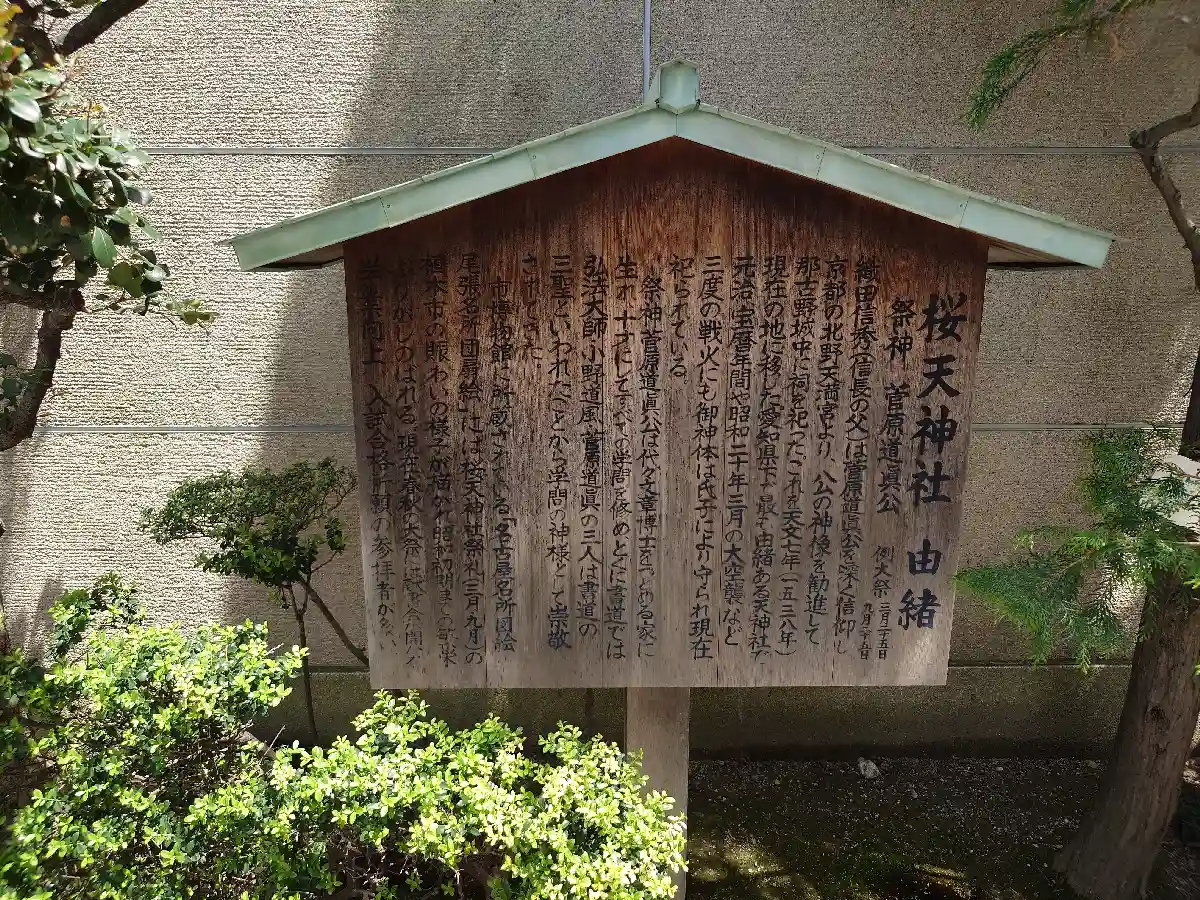 桜天神社 由緒
祭神 菅原道眞公
例大祭 二月二十五日
九月二十五日
織田信秀(信長の父)は菅原道眞公を深く信仰し
京都の北野天満宮より、公の神像を勧進して
那古野城中に祠を祀ったこれを天文七年(一五三八年)
現在の地に移した愛知県下で最も由緒ある天神社で
元治、宝暦年間や昭和二十年三月の大空襲など
三度の戦火にも御神体は氏子により守られ現在
祀られている。
祭神 菅原道眞公は代々文章博士をつとめる家に
生れ 十才にしてすべての学問を修めとくに書道では
弘法大師 小野道風 菅原道眞の三人は書道の
三聖といわれたことから学問の神様として崇敬
されてきた。
市博物館に所蔵されている「名古屋名所団絵
尾張名所団扇絵」には桜天神社祭礼(三月九月)の
植木市の賑わいの様子が描かれ昭和初期までの歓楽
ぶりがしのばれる 現在春秋の大祭には
学業向上、入試合格祈願の参拝者が